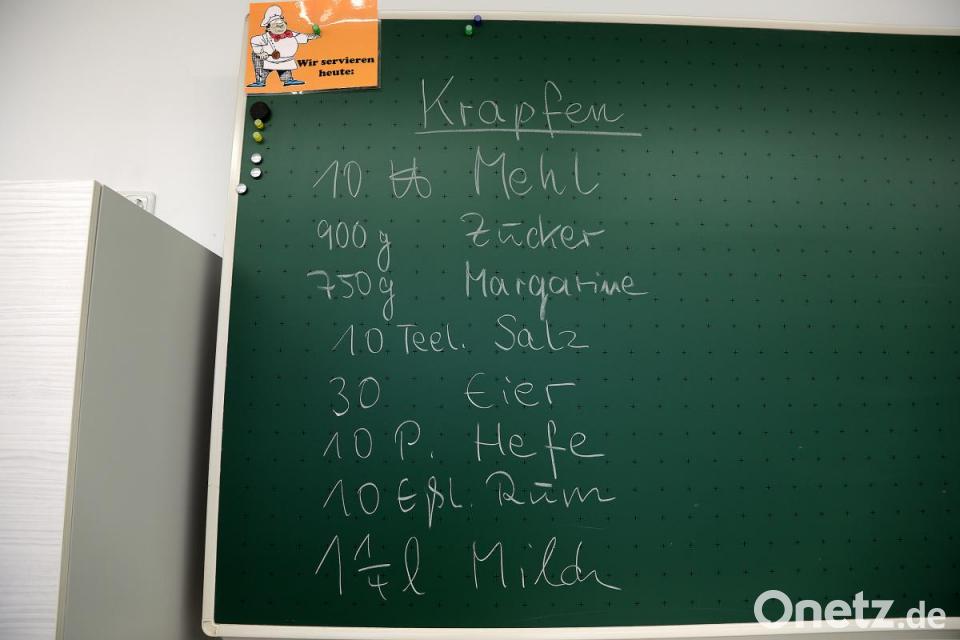 Wir servieren
heute:
Krapfen
10 ℔ Mehl
900 g Zucker
750 g Margarine
10 Teel. Salz
30 Eier
10 P. Hefe
10 Eßl. Rum
1 1/4 l Milch
Onetz.de